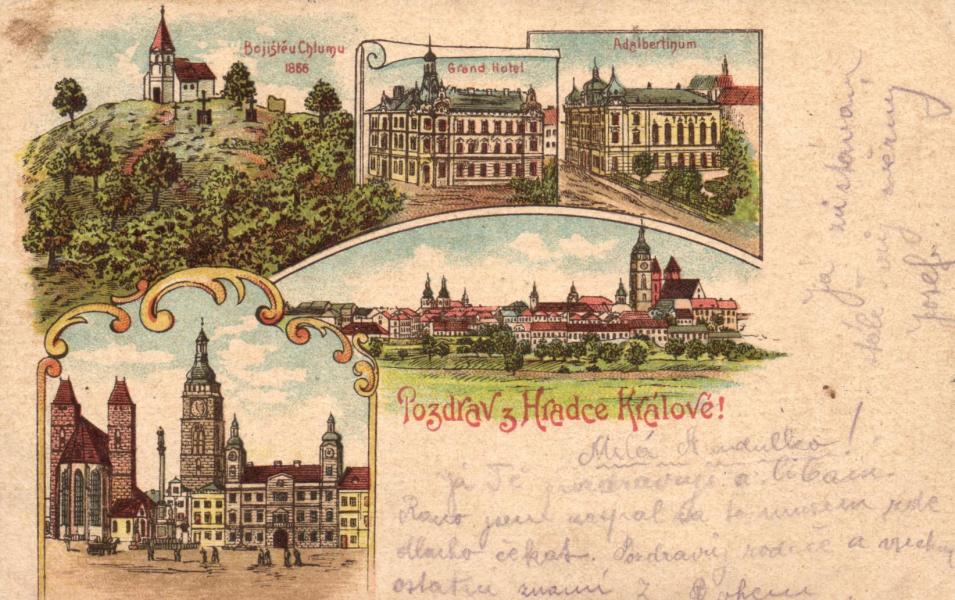 Bojiště u Chlumu
1866
Grand Hotel
Adalbertinum
Pozdrav z Hradce Králové!
Milá Andulko!
já Tě pozdravuji a líbám.
Ráno jsem a to musem zde
dlouho čekat. Pozdravuj rodiče a všechny
ostatní známí Z Bohem
Já zůstávám
stále tvůj věrný
Josef.